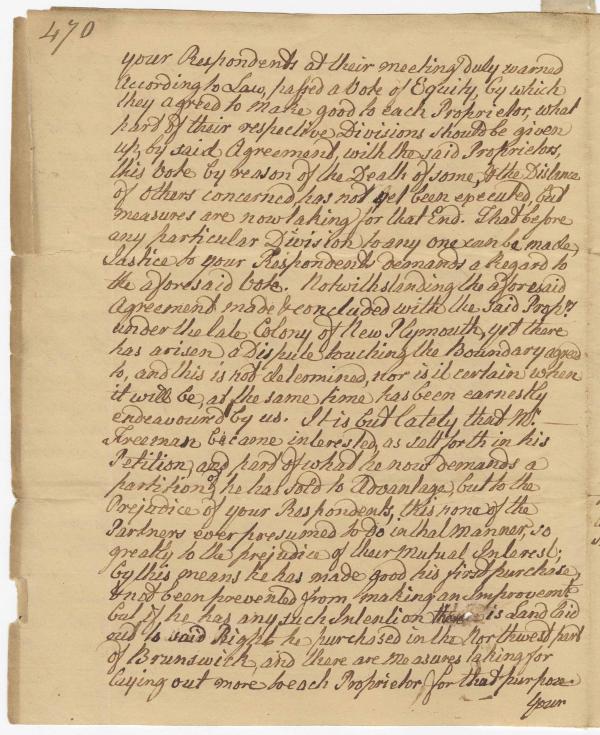 470
your Respondents at their meeting duly warned
According to Law, passed a Vote of Equity, by which
they agreed to make good to each Proprietor, what
part of their respective Divisions should be given
up, by said Agreement, with the said Proprietors,
this Vote by reason of the Death of some, & the Distance
of others concerned has not yet been executed, but
measures are now taking for that End. That before
any particular Division to any one can be made,
Justice to your Respondents demands a Regard to
the aforesaid Vote. Notwithstanding the afforesaid
Agreement made & concluded with the said Propr.
under the late Colony of New Plymouth, yet there
has arisen a Dispute touching the Boundary agreed
to, and this is not determined, nor is it certain when
it will be, at the same time has been earnestly
endeavoured by us. It is but lately that Mr.
Freeman became interested, as sett forth in his
Petition, and part of what he now demands a
partition of, he has sold to Advantage, but to the
Prejudice of your Respondents, this none of the
Partners ever presumed to do in that manner, so
greatly to the prejudice of their Mutual Interest;
by this means he has made good his first purchase,
& not been prevented from making an Improvemt
but if he has any such Intention there is Land laid
out to said Right he purchased in the Northwest part
of Brunswick, and there are measures taking for
laying out more to each Proprietor for that purpose.
Your